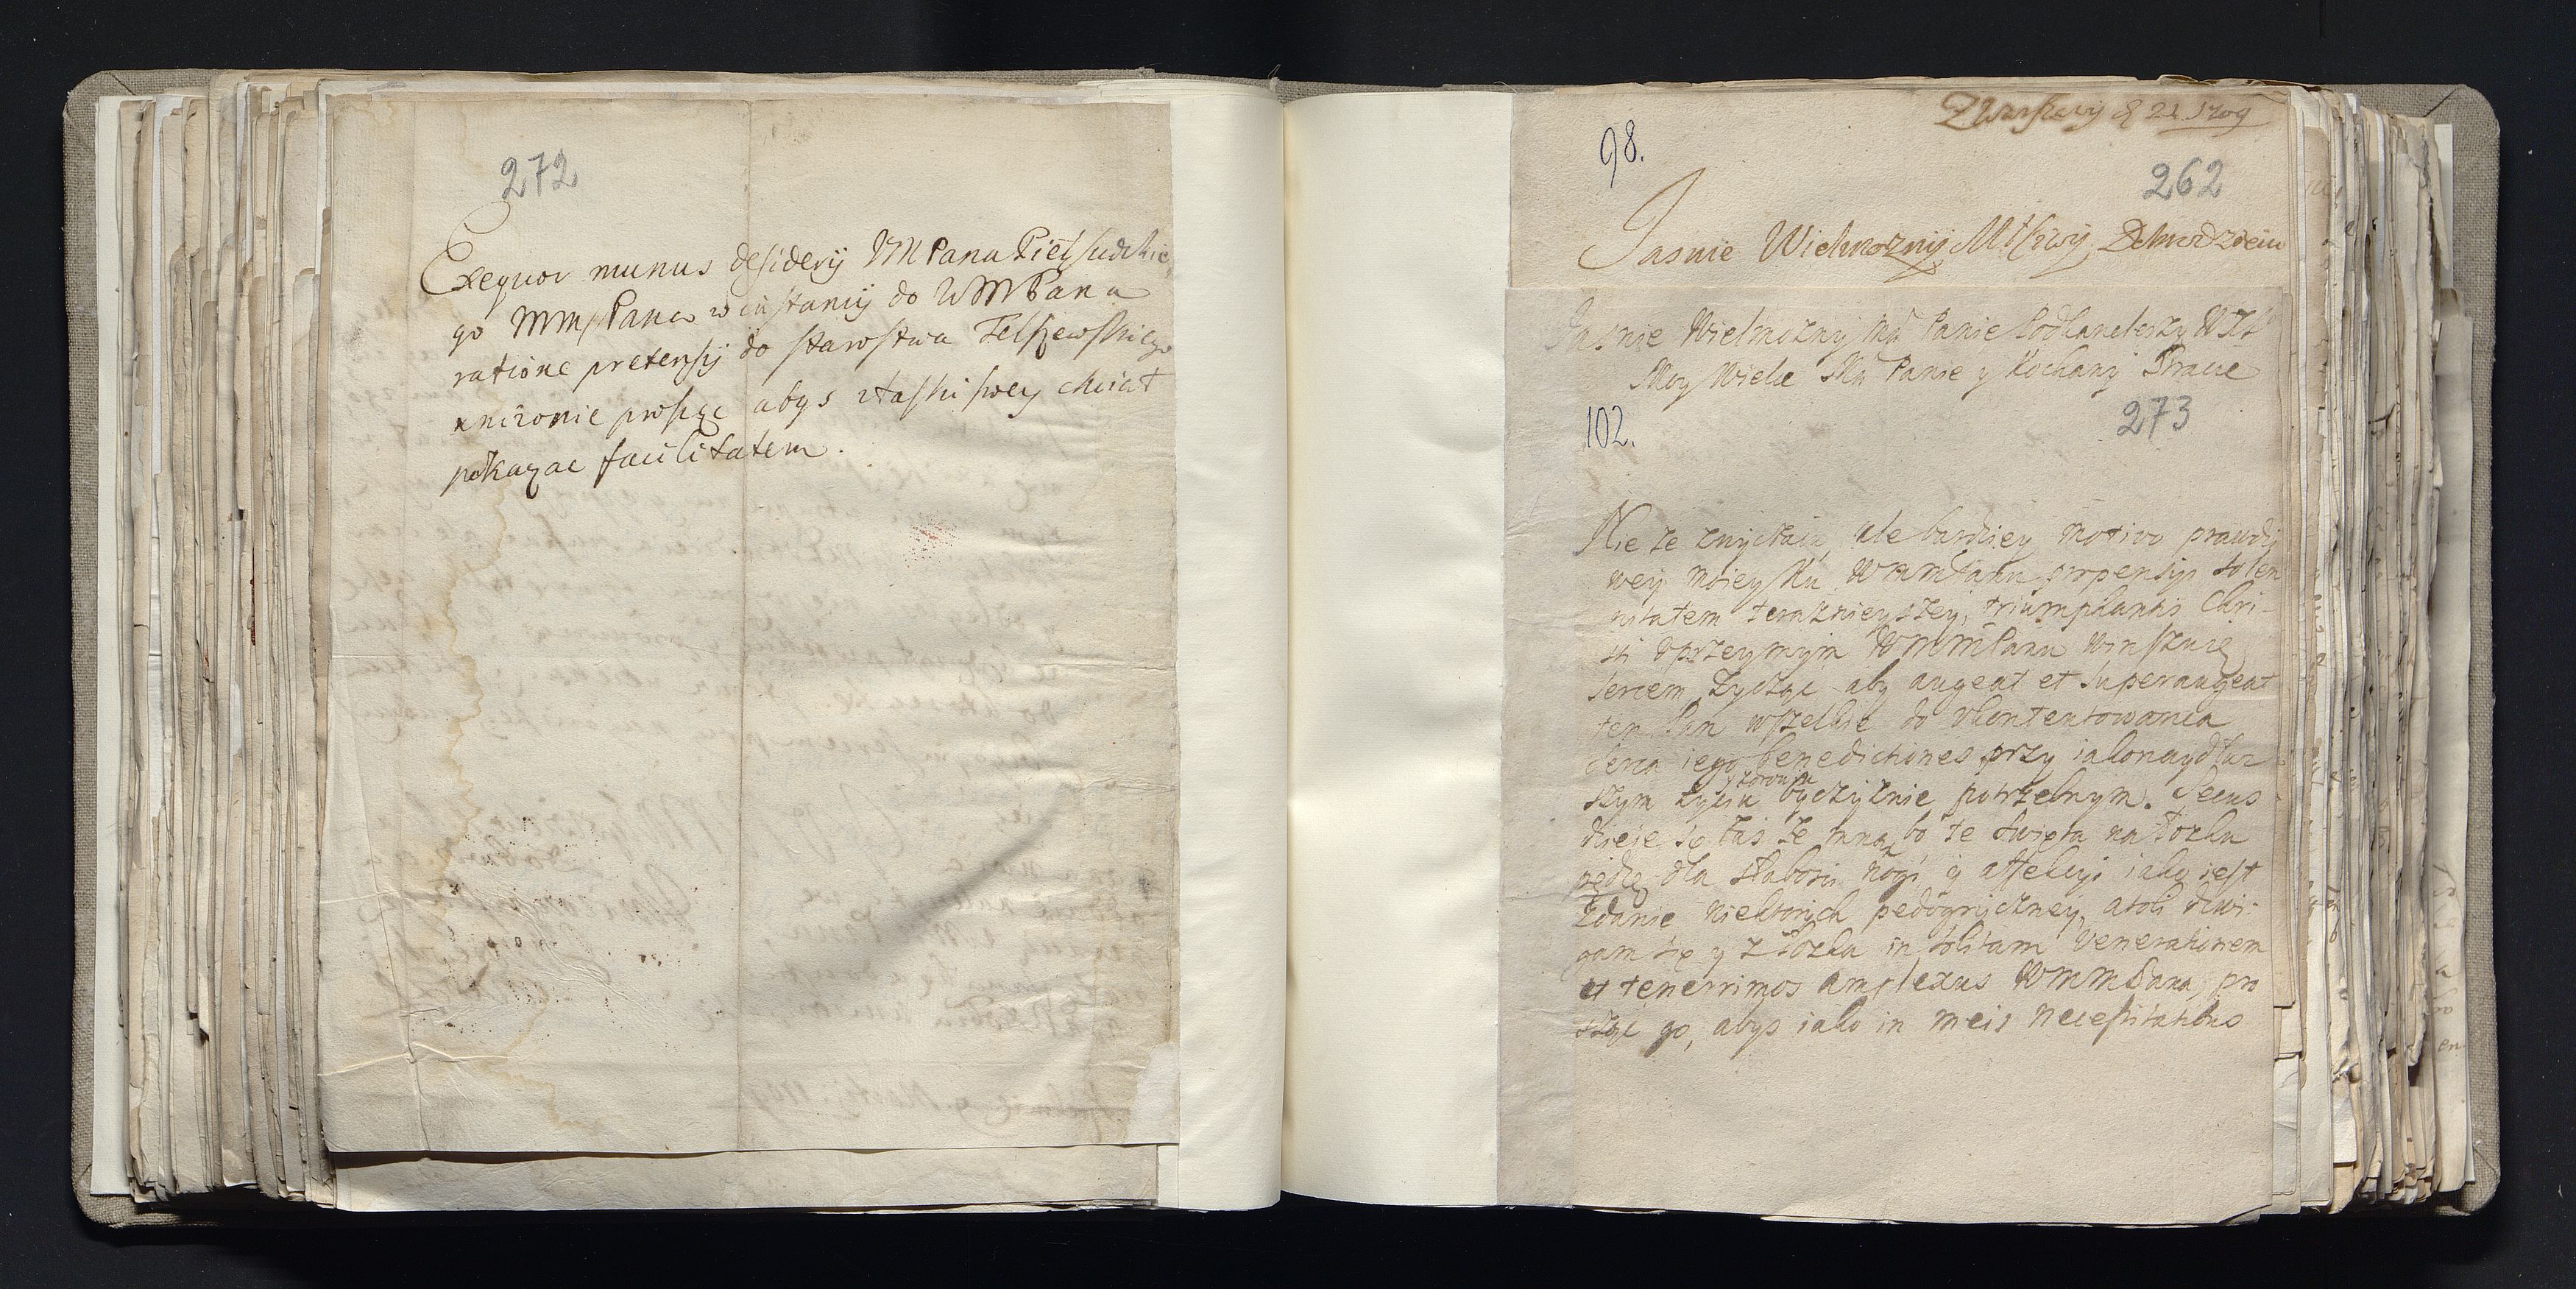 272
Exequor munus desiderij WM Pana Pielsudskie
go WMmPana w instancij do WMPana
ratione pretensij do starostwa Telszewskiego
unizonie prosząc abys z łaski swey chciał
pokazac facilitatem.
Z Warszawy 21 1709
98.
262
Jasnie Wielmozny Mściwy Dobrodzieiu
Jasnie Wielmozny Mći Panie Podkanclerzy WXL
Moy Wielce Mći Panie y Kochany Bracie
102.
273
Nie ze zwyczaiu, ale bardziey motivo prawdzi
wey moiey ku WMMPanu propensyi solen
nitatem terazniejszey, triumphantis Chri-
sti uprzeymym WMMPanu winszuię
sercem zycząc aby augeat et superaugeat
ten Pan wszelkie do ukontentowania
serca iego benedictiones przy iako naydłuz
y zdrowiu
szym zyciu oyczyznie potrzebnym. Secus
dzieie się zas ze mną bo te swięta na łozku
pędzę dla słabosci nogi y affekcyi iako iest
zdanie niektorych pedogryczney, atoli dzwi-
gam się y z łozka in solitam venerationem
et tenerrimos amplexus WMMPana, pro
sząc go, abys iako in meis necessitatibus